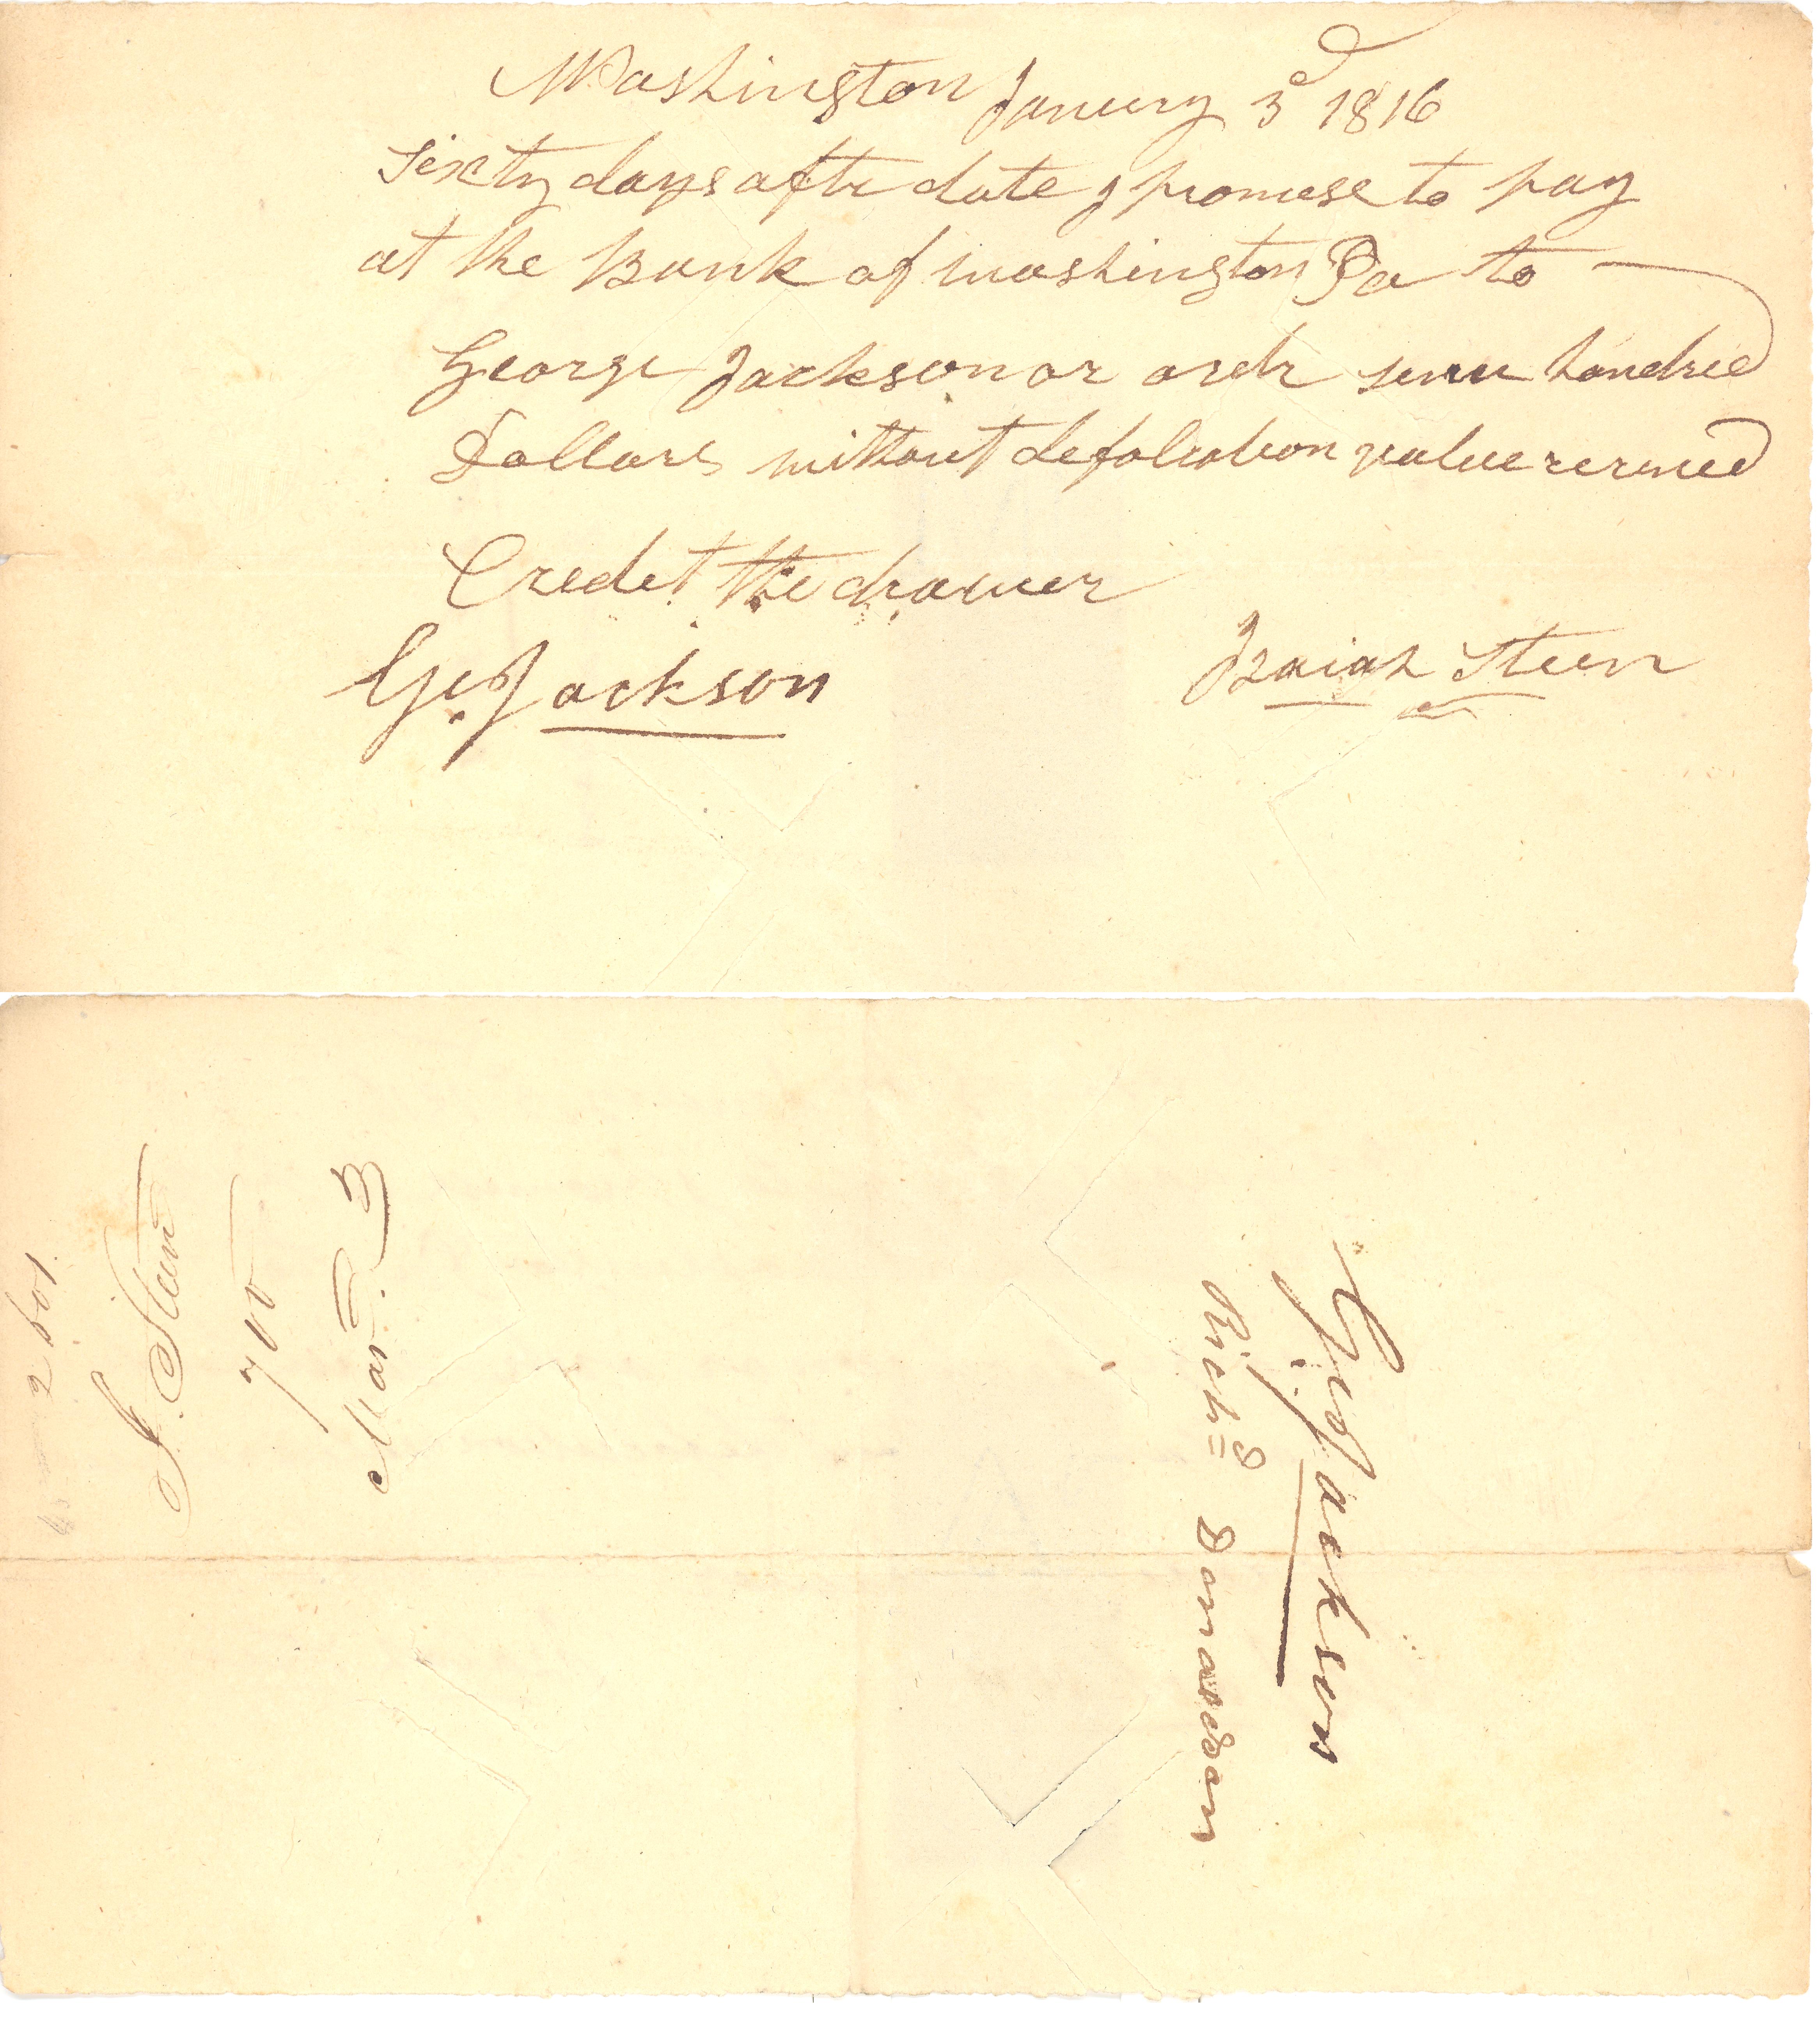 Washington January 3d 1816
Sixty days after date I promise to pay
at the Bank of Washington Pa to
George Jackson or ordr seven hondred
Dollars without defalcation value received
Credet the drawer
Geo Jackson
Isaiah Steen
I. Steen
700
Mar. 3
Geo Jackson
Richd Donaldson